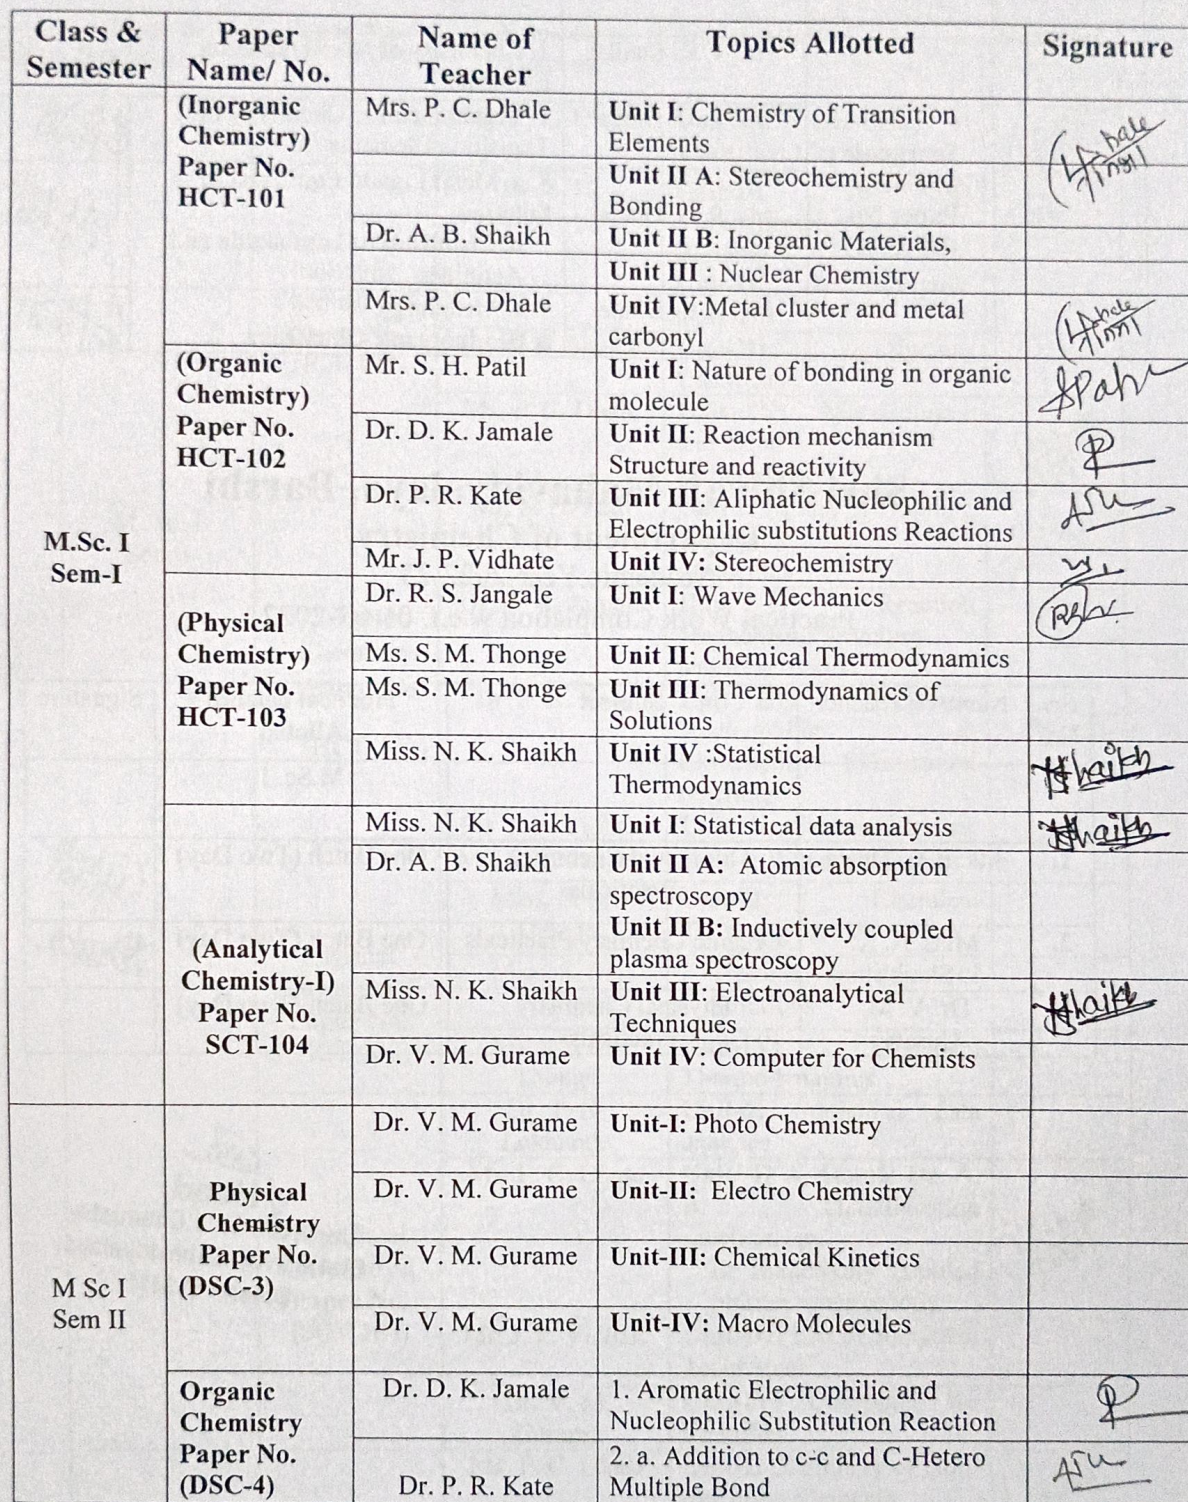 Class & Semester | Paper Name/ No. | Name of Teacher | Topics Allotted | Signature
M.Sc. I
Sem-I
(Inorganic
Chemistry)
Paper No.
HCT-101
Mrs. P. C. Dhale
Unit I: Chemistry of Transition
Elements
Unit II A: Stereochemistry and
Bonding
Dr. A. B. Shaikh
Unit II B: Inorganic Materials,
Unit III : Nuclear Chemistry
Mrs. P. C. Dhale
Unit IV:Metal cluster and metal
carbonyl
(Organic
Chemistry)
Paper No.
HCT-102
Mr. S. H. Patil
Unit I: Nature of bonding in organic
molecule
Dr. D. K. Jamale
Unit II: Reaction mechanism
Structure and reactivity
Dr. P. R. Kate
Unit III: Aliphatic Nucleophilic and
Electrophilic substitutions Reactions
Mr. J. P. Vidhate
Unit IV: Stereochemistry
(Physical
Chemistry)
Paper No.
HCT-103
Dr. R. S. Jangale
Unit I: Wave Mechanics
Ms. S. M. Thonge
Unit II: Chemical Thermodynamics
Ms. S. M. Thonge
Unit III: Thermodynamics of
Solutions
Miss. N. K. Shaikh
Unit IV :Statistical
Thermodynamics
Shaikh
(Analytical
Chemistry-I)
Paper No.
SCT-104
Miss. N. K. Shaikh
Unit I: Statistical data analysis
Shaikh
Dr. A. B. Shaikh
Unit II A: Atomic absorption
spectroscopy
Unit II B: Inductively coupled
plasma spectroscopy
Miss. N. K. Shaikh
Unit III: Electroanalytical
Techniques
Shaikh
Dr. V. M. Gurame
Unit IV: Computer for Chemists
M Sc I
Sem II
Physical
Chemistry
Paper No.
(DSC-3)
Dr. V. M. Gurame
Unit-I: Photo Chemistry
Dr. V. M. Gurame
Unit-II: Electro Chemistry
Dr. V. M. Gurame
Unit-III: Chemical Kinetics
Dr. V. M. Gurame
Unit-IV: Macro Molecules
Organic
Chemistry
Paper No.
(DSC-4)
Dr. D. K. Jamale
1. Aromatic Electrophilic and
Nucleophilic Substitution Reaction
Dr. P. R. Kate
2. a. Addition to c-c and C-Hetero
Multiple Bond